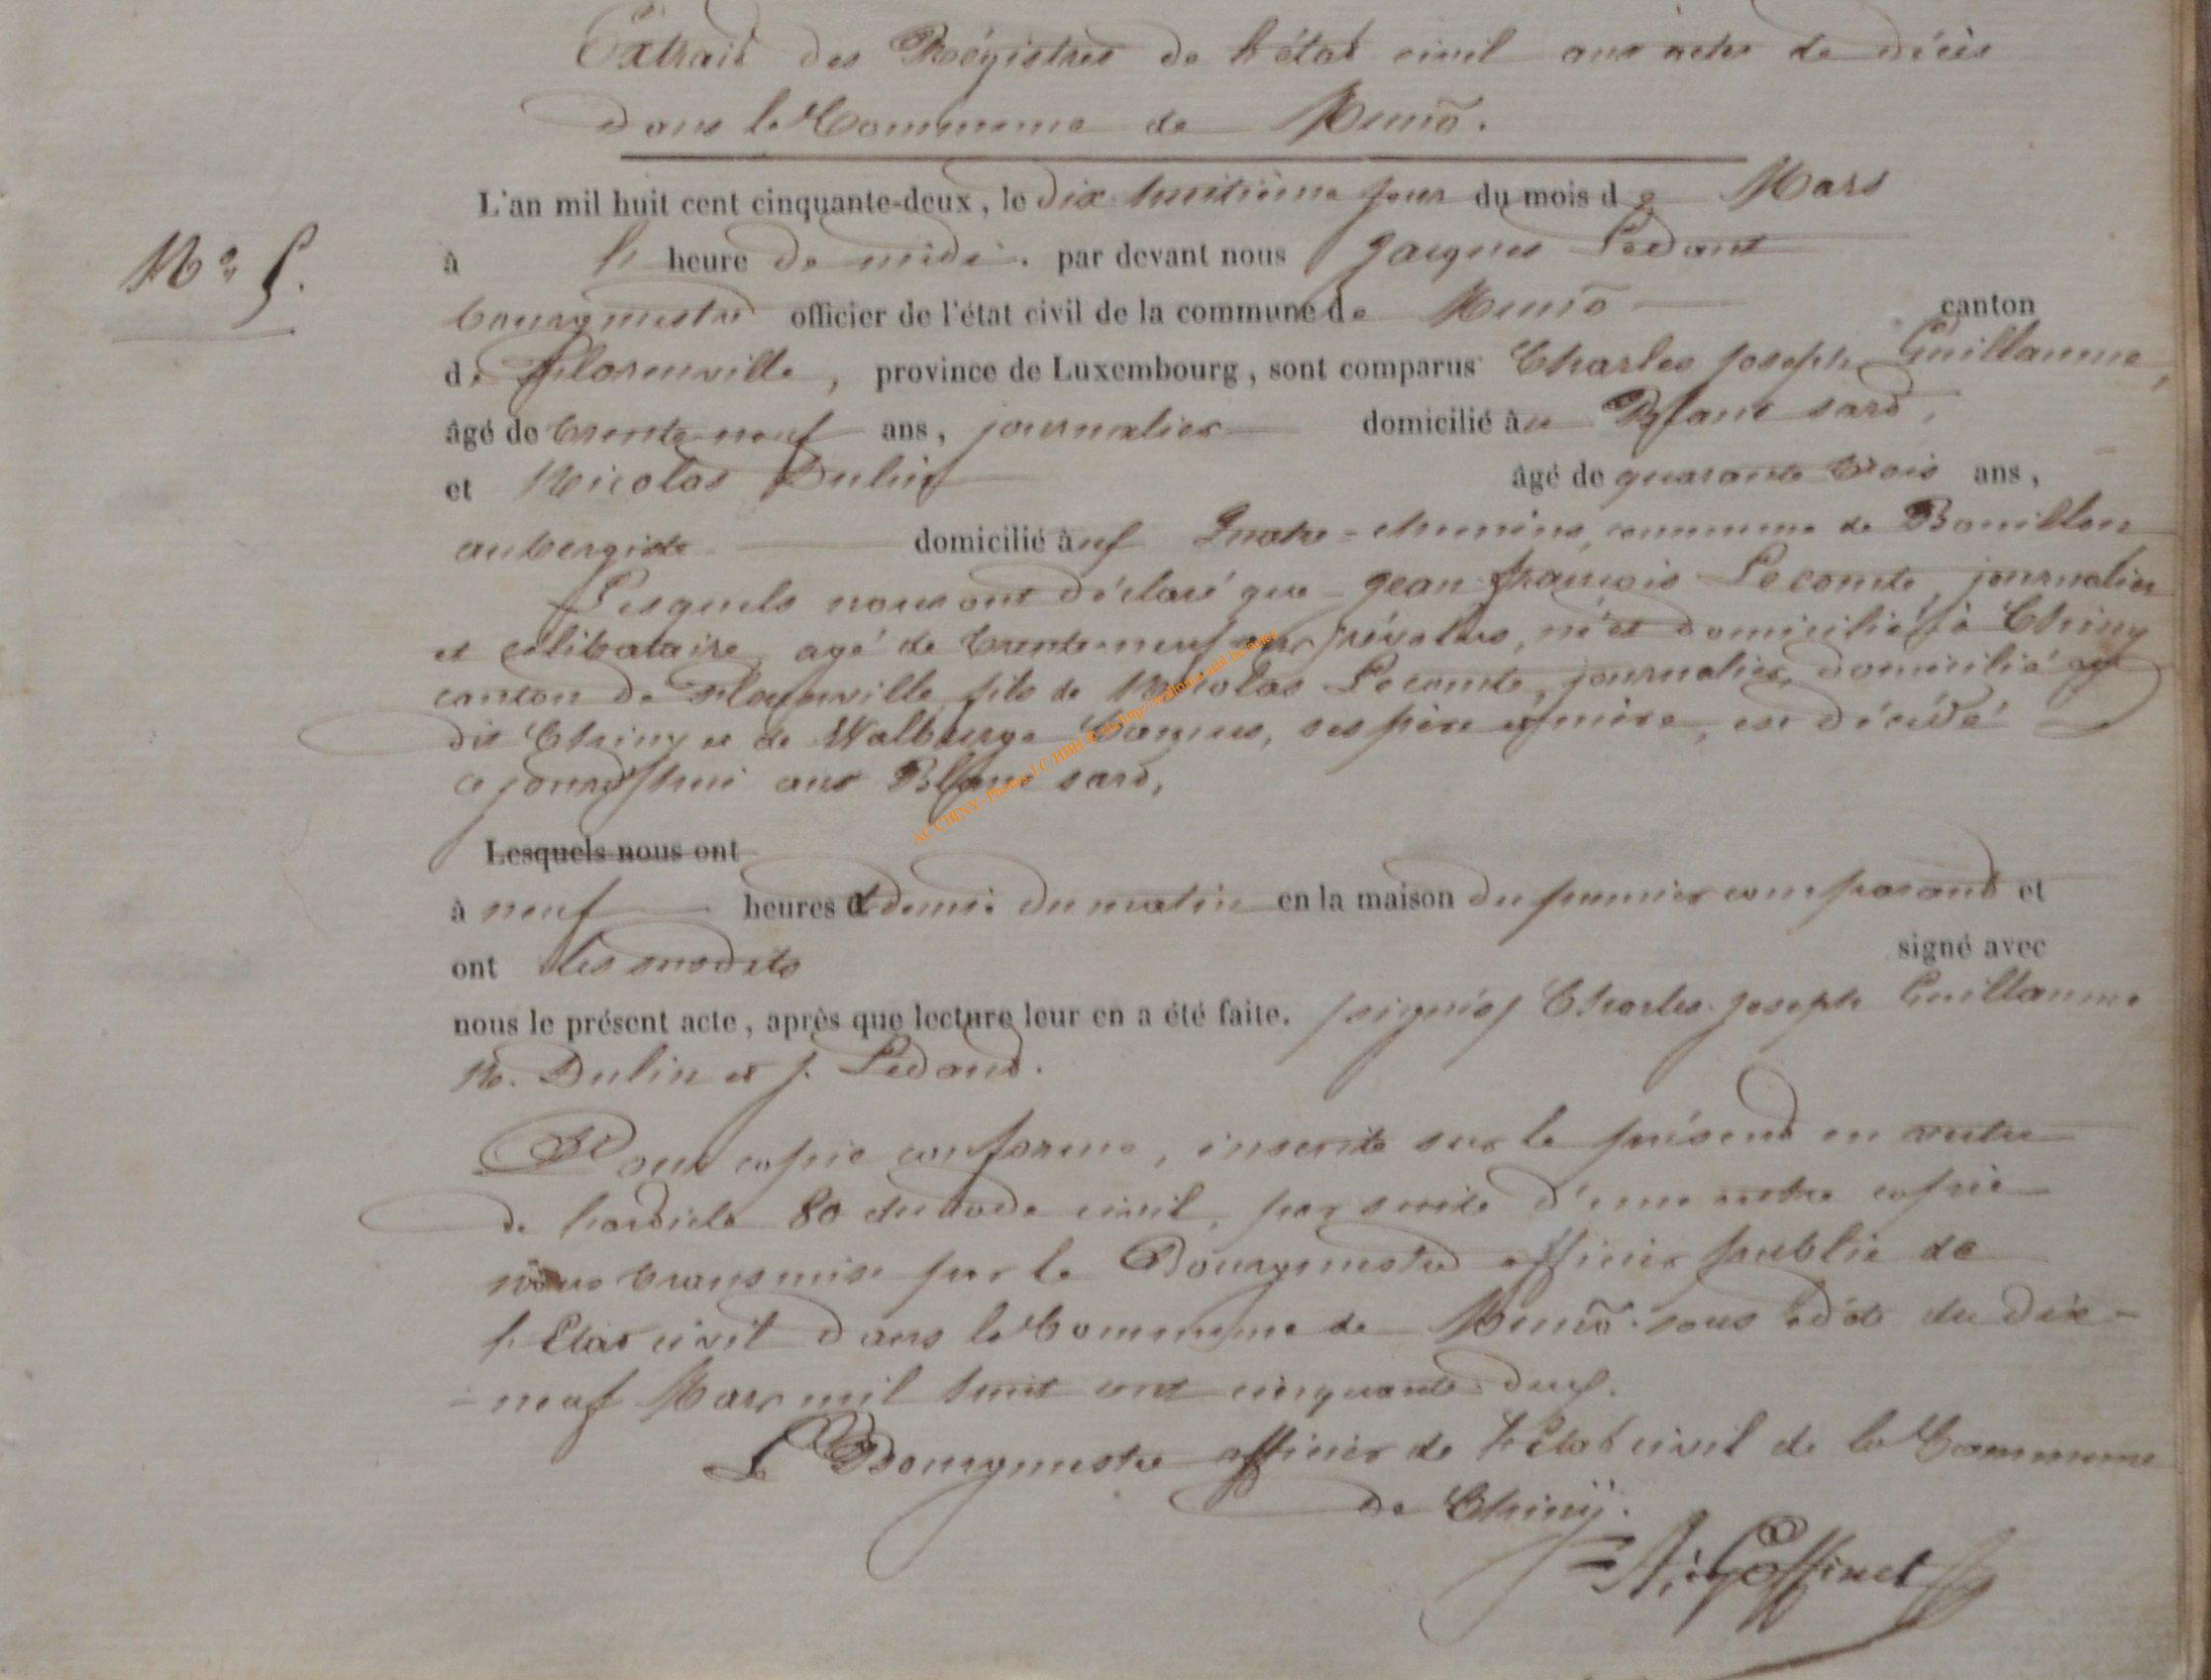 Extrait des Régistres de l'état civil aux actes de décès
dans la Commune de Muno.
L'an mil huit cent cinquante-deux, le dix huitième jour du mois de Mars
N° 5.
à l' heure de midi. par devant nous Jacques Ledant
bourgmestre officier de l'état civil de la commune de Muno canton
de Florenville, province de Luxembourg, sont comparus Charles Joseph Guillaume,
âgé de trente-neuf ans, journalier domicilié au Blanc sard,
et Nicolas Dulin âgé de quarante trois ans,
aubergiste domicilié aux Quatre-chemins, commune de Bouillon
Lesquels nous ont déclaré que Jean françois Lecomte, journalier
et célibataire, agé de trente-neuf ans révolus, né et domicilié à Chiny
canton de Florenville, fils de Nicolas Lecomte, journalier, domicilié au
dit Chiny et de Walburge, ses père et mère, est décédé
ce jourd'hui aux Blanc sard,
AC CHINY
Lesquels nous ont
à neuf heures et demie du matin en la maison du premier comparant et
ont les susdits signé avec
nous le présent acte, après que lecture leur en a été faite. (signés) Charles-Joseph Guillaume
N. Dulin et J. Ledant.
Pour copie conforme, inscrite sur le présent en vertu
de l'article 80 du code civil, par suite d'une autre copie
nous transmise par le Bourgmestre officier public de
l'Etat civil dans la Commune de Muno sous date du dix-
-neuf Mars mil huit cent cinquante deux.
Le Bourgmestre officier de l'Etat civil de la Commune
de Chiny.
Goffinet